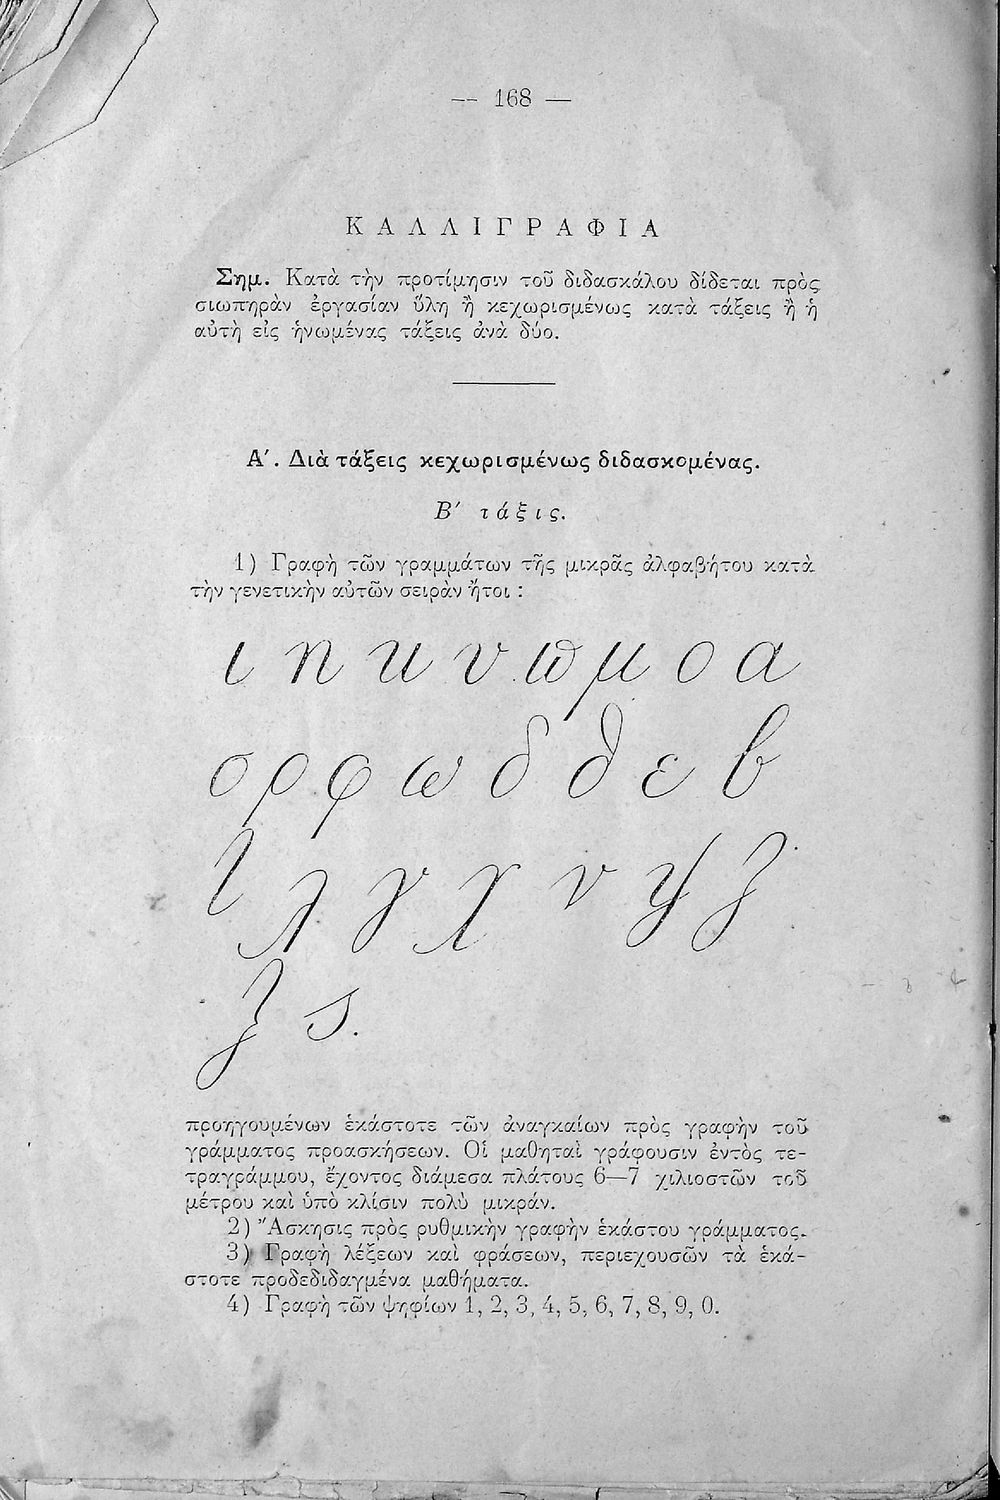 — 168 —
ΚΑΛΛΙΓΡΑΦΙΑ
Σημ. Κατὰ τὴν προτίμησιν τοῦ διδασκάλου δίδεται πρὸς
σιωπηρὰν ἐργασίαν ὕλη ἢ κεχωρισμένως κατὰ τάξεις ἢ ἡ
αὐτὴ εἰς ἡνωμένας τάξεις ἀνὰ δύο.
Α′. Διὰ τάξεις κεχωρισμένως διδασκομένας.
Β′ τάξις.
1) Γραφὴ τῶν γραμμάτων τῆς μικρᾶς ἀλφαβήτου κατὰ
τὴν γενετικὴν αὐτῶν σειρὰν ἤτοι :
ι η κ υ ϖ μ ο α
σ ρ φ ω δ θ ε β
τ λ γ χ ν ψ ζ
ξ ς.
προηγουμένων ἑκάστοτε τῶν ἀναγκαίων πρὸς γραφὴν τοῦ
γράμματος προασκήσεων. Οἱ μαθηταὶ γράφουσιν ἐντὸς τε-
τραγράμμου, ἔχοντος διάμεσα πλάτους 6—7 χιλιοστῶν τοῦ
μέτρου καὶ ὑπὸ κλίσιν πολὺ μικράν.
2) Ἄσκησις πρὸς ρυθμικὴν γραφὴν ἑκάστου γράμματος.
3) Γραφὴ λέξεων καὶ φράσεων, περιεχουσῶν τὰ ἑκά-
στοτε προδεδιδαγμένα μαθήματα.
4) Γραφὴ τῶν ψηφίων 1, 2, 3, 4, 5, 6, 7, 8, 9, 0.